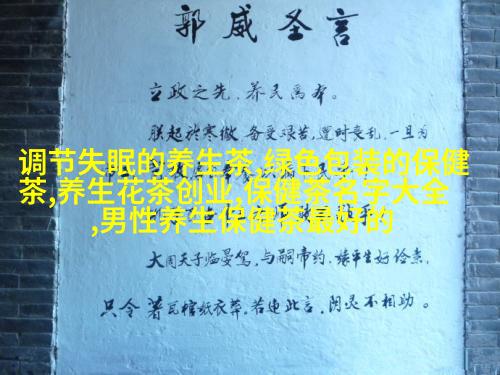 郭威圣言
立政之先,养民為本。
朕起於寒微,备受艰苦,遭时丧乱,一旦为
调节失眠的养生茶,绿色包装的保健
茶,养生花茶创业,保健茶名字大全
,男性养生保健茶最好的
大周天子临晏驾,与嗣帝约,缘平生好俭素,
只令著瓦棺纸衣葬。若违此言,阴灵不相助。